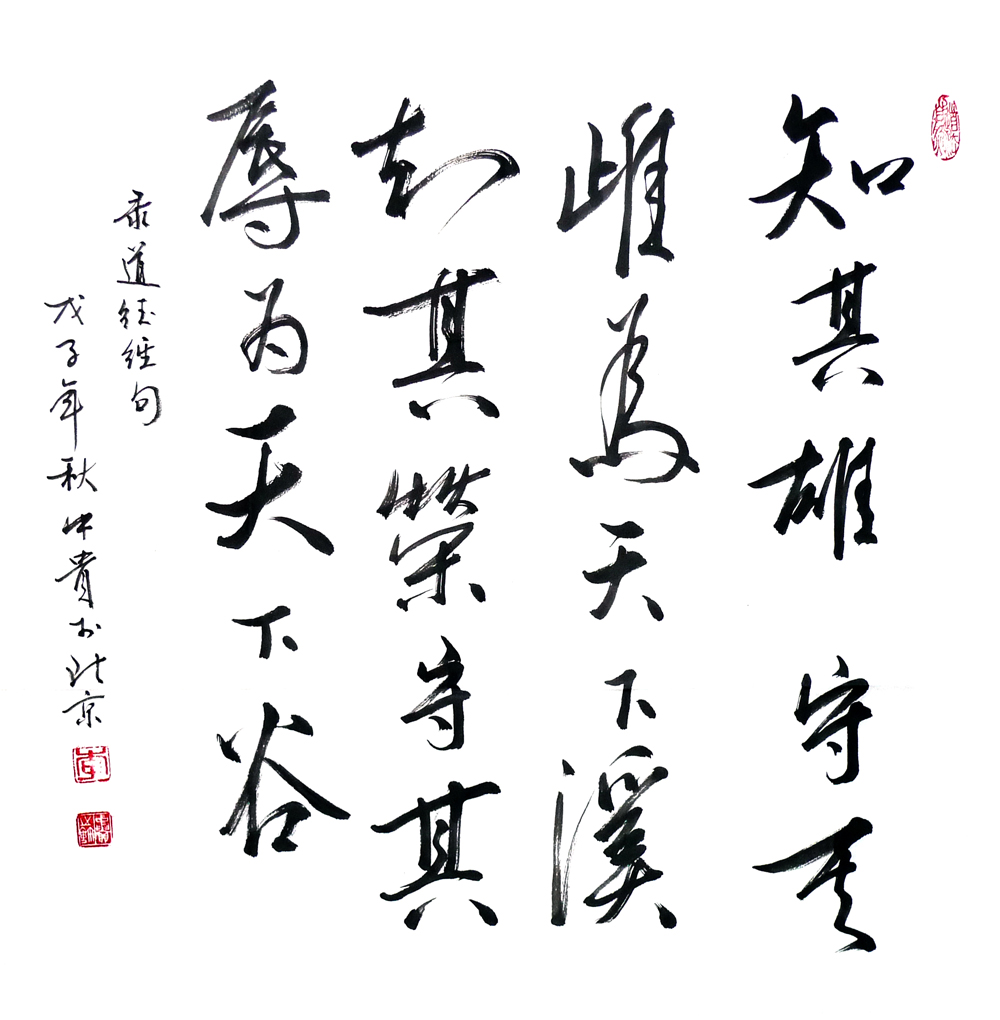 知其雄守其
雌為天下溪
知其榮守其
辱为天下谷
录道德经句
戊子年秋中贵於北京